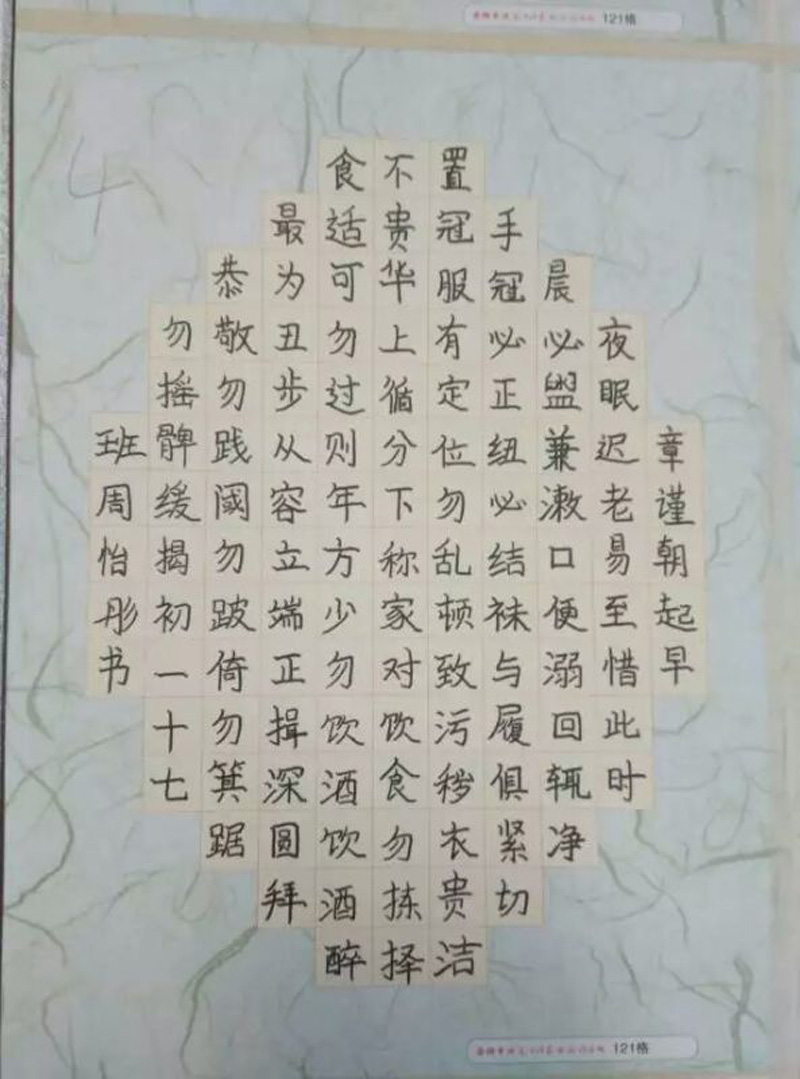 121格
章谨朝起早
夜眠迟老易至惜此时
晨必盥兼漱口便溺回辄净
手冠必正纽必结袜与履俱紧切
置冠服有定位勿乱顿致污秽衣贵洁
不贵华上循分下称家对饮食勿拣择
食适可勿过则年方少勿饮酒饮酒醉
最为丑步从容立端正揖深圆拜
恭敬勿践阈勿跛倚勿箕踞
勿摇髀缓揭初一十七
班周怡彤书
121格